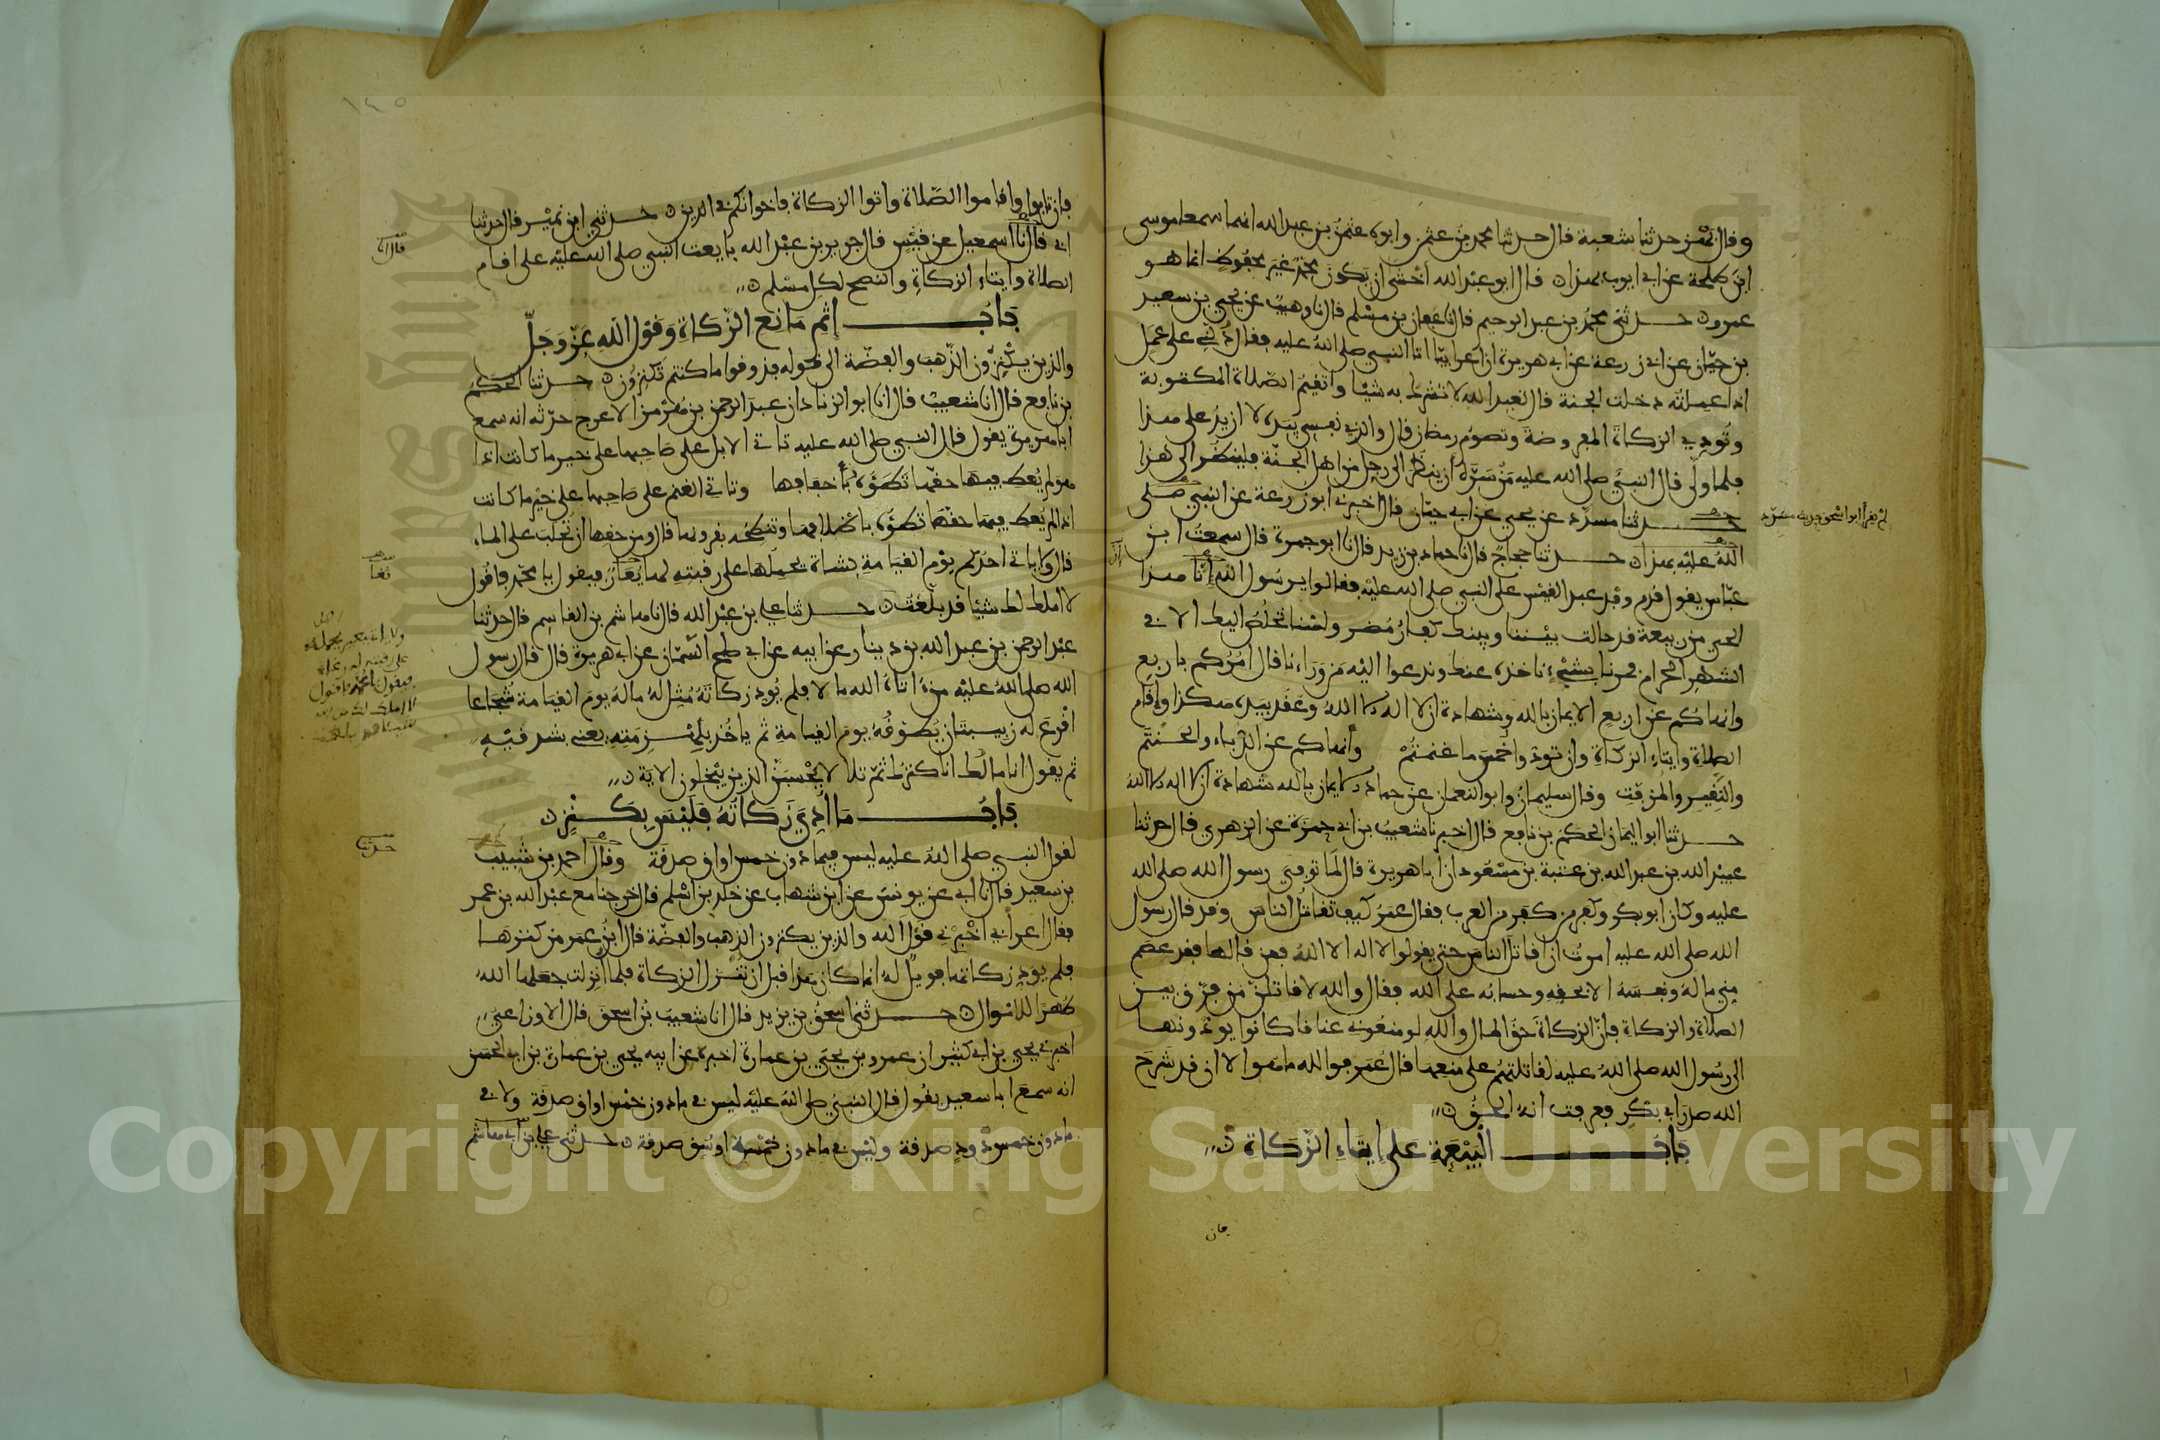 وقال بهز حدثنا شعبة قال حدثنا محمد بن عثمن وابوه عثمن بن عبد الله انهما سمعا موسى
ابن طلحة عن ابي ايوب بهذا ن قال ابو عبد الله اخشى ان يكون محمد غير محفوظ انما هو
عمرو ن حدثني محمد بن عبد الرحيم قال نا عفان بن مسلم قال نا وهيب عن يحيى بن سعيد
بن حيان عن ابي زرعة عن ابي هريرة ان اعرابيا اتا النبي صلى الله عليه فقال دلني على عمل
اذا عملته دخلت الجنة قال تعبد الله لا تشرك به شيئا وتقيم الصلاة المكتوبة
وتودي الزكاة المفروضة وتصوم رمضان قال والذي نفسي بيده لا ازيد على هذا
فلما ولى قال النبي صلى الله عليه من سره ان ينظر الى رجل من اهل الجنة فلينظر الى هذا
حدثنا مسدد عن يحيى عن ابي حيان قال اخبرني ابو زرعة عن النبي صلى
الله عليه بهذا ن حدثنا حجاج قال نا حماد بن زيد قال نا ابو جمرة قال سمعت ابن
عباس يقول قدم وفد عبد القيس على النبي صلى الله عليه فقالوا يرسول الله إنا هذا
الحي من ربيعة قد حالت بيننا وبينك كفار مضر ولسنا نخلص اليك الا في
الشهر الحرام فمرنا بشيء ناخذه عنك وندعوا اليه من وراءنا قال امركم باربع
وانهاكم عن اربع الايمان بالله وشهادة ان لا اله الا الله وعقد بيده هكذا وإقام
الصلاة وايتاء الزكاة وان تودوا خمس ما غنمتم وأنهاكم عن الدباء والحنتم
والنقير والمزفت وقال سليمان وابو النعمان عن حماد الايمان بالله شهادة ان لا اله الا الله
حدثنا ابو اليمان الحكم بن نافع قال اخبرنا شعيب بن ابي حمزة عن الزهري قال حدثنا
عبيد الله بن عبد الله بن عتبة بن مسعود ان ابا هريرة قال لما توفي رسول الله صلى الله
عليه وكان ابو بكر وكفر من كفر من العرب فقال عمر كيف تقاتل الناس وقد قال رسول
الله صلى الله عليه امرت ان اقاتل الناس حتى يقولوا لا اله الا الله فمن قالها فقد عصم
مني ماله ونفسه الا بحقه وحسابه على الله فقال والله لاقاتلن من فرق بين
الصلاة والزكاة فان الزكاة حق المال والله لو منعوني عناقا كانوا يودونها
الى رسول الله صلى الله عليه لقاتلتهم على منعها قال عمر فوالله ما هوا الا ان قد شرح
الله صدر ابي بكر فعرفت انه الحق ن
باب البيعة على ايتاء الزكاة ن
فان
لم يقرأ ابو اسحق حديث مسدد
١٤٥
فان تابوا واقاموا الصلاة واتوا الزكاة فاخوانكم في الدين ن حدثني ابن نمير قال حدثنا
ابي قال نا اسمعيل عن قيس قال جرير بن عبد الله بايعت النبي صلى الله عليه على اقام
الصلاة وايتاء الزكاة والنصح لكل مسلم ن
باب إثم مانع الزكاة وقول الله عز وجل
والذين يكنزون الذهب والفضة الى قوله فذوقوا ما كنتم تكنزون ن حدثنا الحكم
بن نافع قال انا شعيب قال انا ابو الزناد ان عبد الرحمن بن هرمز الاعرج حدثه انه سمع
ابا هريرة يقول قال النبي صلى الله عليه تاتي الابل على صاحبها على خير ما كانت اذا
هو لم يعط فيها حقها تطؤه بأخفافها وتاتي الغنم على صاحبها على خير ما كانت
اذا لم يعط فيها حقها تطؤه باظلافها وتنطحه بقرونها قال ومن حقها أن تحلب على الماء
قال ولا ياتي احدكم يوم القيامة بشاة يحملها على رقبته لها يعار فيقول يا محمد فاقول
لا املك لك شيئا قد بلغت ن حدثنا علي بن عبد الله قال نا هاشم بن القاسم قال حدثنا
عبد الرحمن بن عبد الله بن دينار عن ابيه عن ابي صلح السمان عن ابي هريرة قال قال رسول
الله صلى الله عليه من اتاه الله مالا فلم يود زكاته مثل له ماله يوم القيامة شجاعا
اقرع له زبيبتان يطوقه يوم القيامة ثم ياخذ بلهزمته يعني بشدقيه
ثم يقول انا مالك انا كنزك ثم تلا لا يحسبن الذين يبخلون الاية ن
باب ما ادي زكاته فليس بكنز ن
لقول النبي صلى الله عليه ليس فيما دون خمس اواق صدقة وقال احمد بن شبيب
بن سعيد قال نا ابي عن يونس عن ابن شهاب عن خلد بن اسلم قال خرجنا مع عبد الله بن عمر
فقال اعرابي اخبرني قول الله والذين يكنزون الذهب والفضة قال ابن عمر من كنزها
فلم يود زكاتها فويل له انما كان هذا قبل ان تنزل الزكاة فلما انزلت جعلها الله
طهرا للاموال ن حدثنا اسحق بن يزيد قال انا شعيب بن اسحق قال الاوزاعي
اخبرني يحيى بن ابي كثير ان عمرو بن يحيى بن عمارة اخبره عن ابيه يحيى بن عمارة بن ابي الحسن
انه سمع ابا سعيد يقول قال النبي صلى الله عليه ليس في ما دون خمس اواق صدقة ولا في
ما دون خمس ذود صدقة وليس في ما دون خمسة اوسق صدقة ن حدثني علي بن ابي هاشم
ثغاء
ولا ياتي ببعير يحمله
على رقبته له رغاء
فيقول يا محمد فاقول
لا املك لك من الله
حدثنا
Copyright © King Saud University